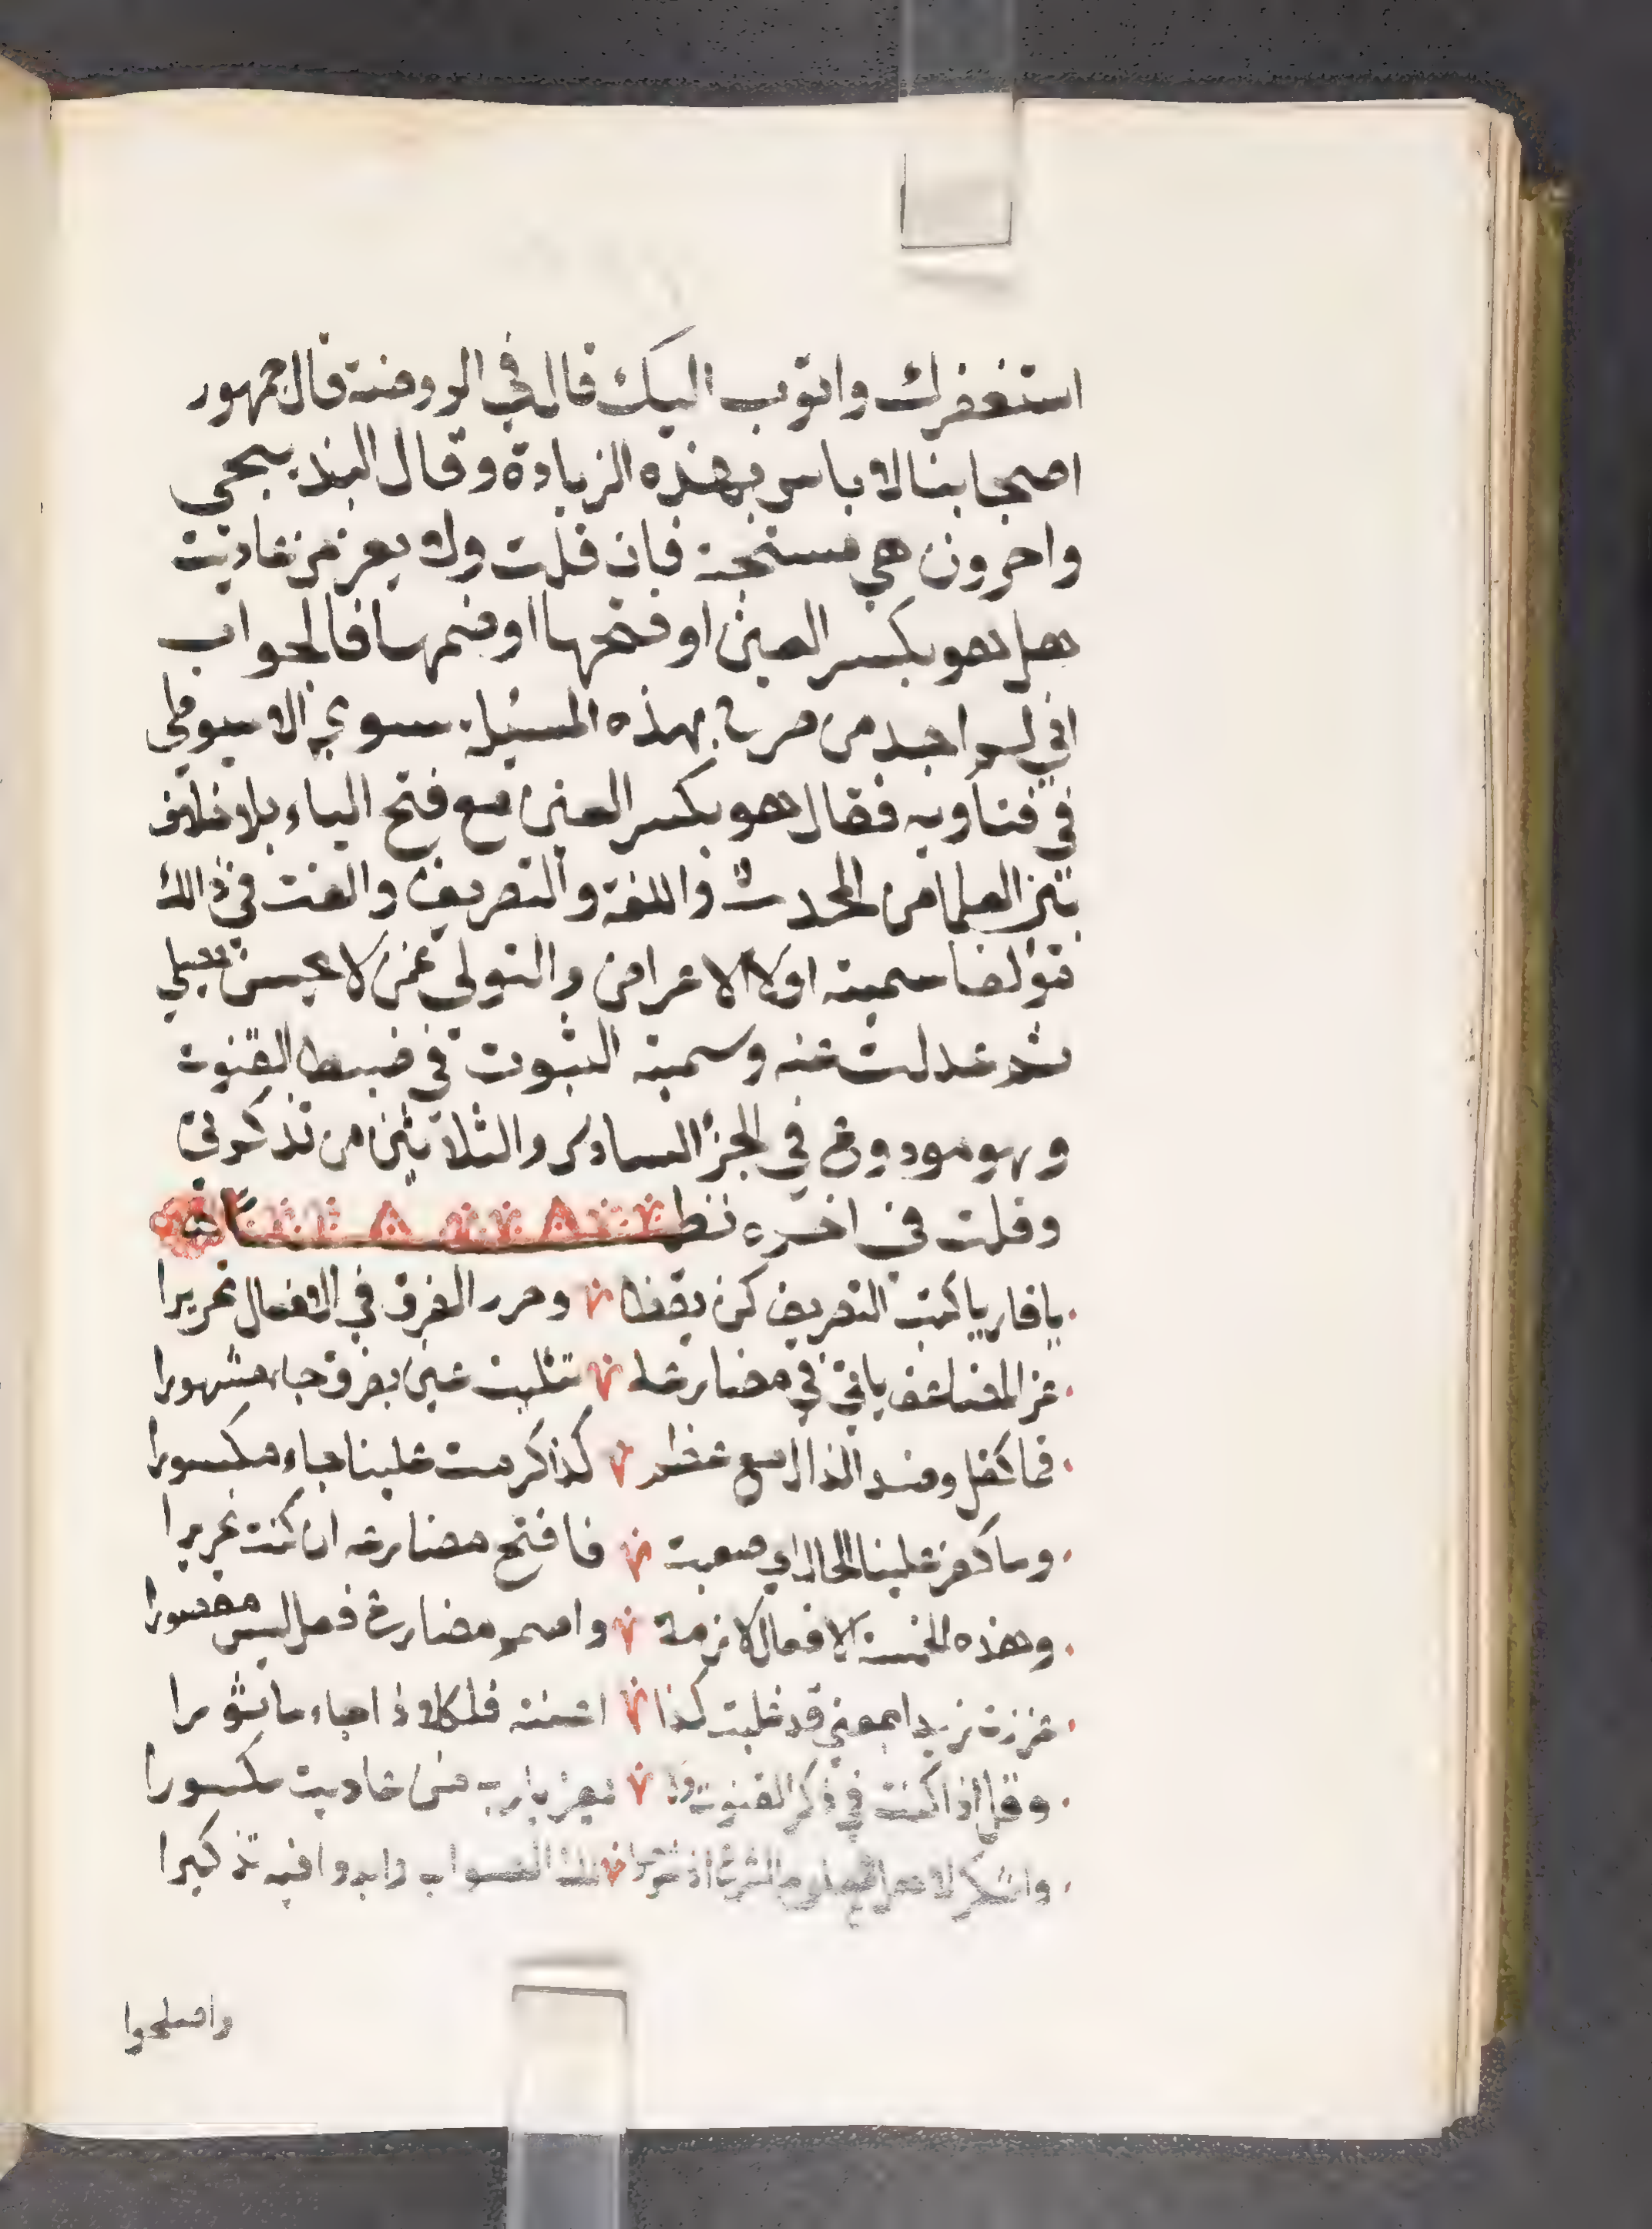 استغفرك واتوب اليك قال في الروضة قال جمهور
اصحابنا لا باس بهذه الزيادة وقال البندنيجي
واخرون هي مستحبة فان قلت ولا يعز من عاديت
هل هو بكسر العين او فتحها او ضمها فالجواب
اني لم اجد من صرح بهذه المسئلة سوي الاسيوطي
في فتاويه فقال هو بكسر العين مع فتح الياء بلا خلاف
بين العلما من الحديث واللغة والتصريف والفت في ذلك
مولفا سميته اولا الاعراض والتولي عمن لا يحسن يصلي
ثم عدلت عنه وسميته الثبوت في ضبط القنوت
وهو مودوع في الجزء السادس والثلاثين من تذكرتي
وقلت في اخره نظما
يا قاريا كتب التصريف كن يقظا وحرر الفرق في الافعال تحريرا
عز المضاعف ياتي في مضارعه تثليث عين بفرق جاء مشهورا
فما كقل وضد الذل مع عظم كذا كرمت علينا جاء مكسورا
وما كعز علينا الحال اي صعبت فافتح مضارعه ان كنت نحريرا
وهذه الخمسة الافعال لازمة واضمم مضارع فعل ليس مقصورا
عززت زيدا بمعني قد غلبت كذا اعنته فكلا ذا جاء ماثورا
وقل اذا كنت في ذكر القنوت ولا يعز يا رب من عاديت مكسورا
واشكر لاهل علوم الشرع اذ شرحوا لك الصواب وابدوا فيه تذكيرا
واصلحوا